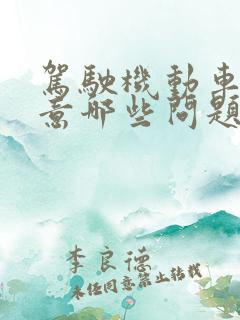 駕駛機動車
意哪些問題
李良德
未經同意禁止轉載